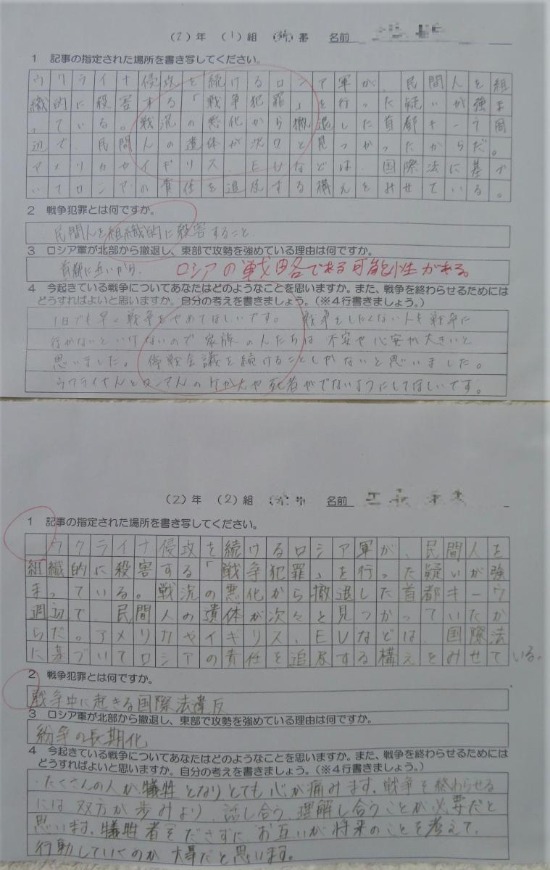 (2)年 (1)組 ( )番 名前
1 記事の指定された場所を書き写してください。
ウクライナ侵攻を続けるロシア軍が、民間人を組
織的に殺害する「戦争犯罪」を行った疑いが強ま
っている。戦況の悪化から撤退した首都キーウ周
辺で、民間人の遺体が次々と見つかったからだ。
アメリカやイギリス、EUなどは、国際法に基づ
いてロシアの責任を追及する構えをみせている。
2 戦争犯罪とは何ですか。
民間人を組織的に殺害すること
3 ロシア軍が北部から撤退し、東部で攻勢を強めている理由は何ですか。
ロシアの戦略である可能性がある。
4 今起きている戦争についてあなたはどのようなことを思いますか。また、戦争を終わらせるためには
どうすればよいと思いますか。自分の考えを書きましょう。(※4行書きましょう。)
1日でも早く戦争をやめてほしいです。戦争をしたくない人も戦争に
行かないといけないので家族の人たちは不安や心配が大きいと
思いました。停戦会議を続けることしかないと思いました。
(2)年 (2)組 ( )番 名前
1 記事の指定された場所を書き写してください。
ウクライナ侵攻を続けるロシア軍が、民間人を
組織的に殺害する「戦争犯罪」を行った疑いが強
まっている。戦況の悪化から撤退した首都キーウ
周辺で、民間人の遺体が次々と見つかっていたか
らだ。アメリカやイギリス、EUなどは、国際法
に基づいてロシアの責任を追及する構えをみせている。
2 戦争犯罪とは何ですか。
戦争中に起きる国際法違反
3 ロシア軍が北部から撤退し、東部で攻勢を強めている理由は何ですか。
紛争の長期化
4 今起きている戦争についてあなたはどのようなことを思いますか。また、戦争を終わらせるためには
どうすればよいと思いますか。自分の考えを書きましょう。(※4行書きましょう。)
たくさんの人が犠牲となりとても心が痛みます。戦争を終わらせる
には双方が歩みより、話し合う、理解し合うことが必要だと
思います。犠牲者をださずにお互いが将来のことを考えて、
行動していくのが大事だと思います。